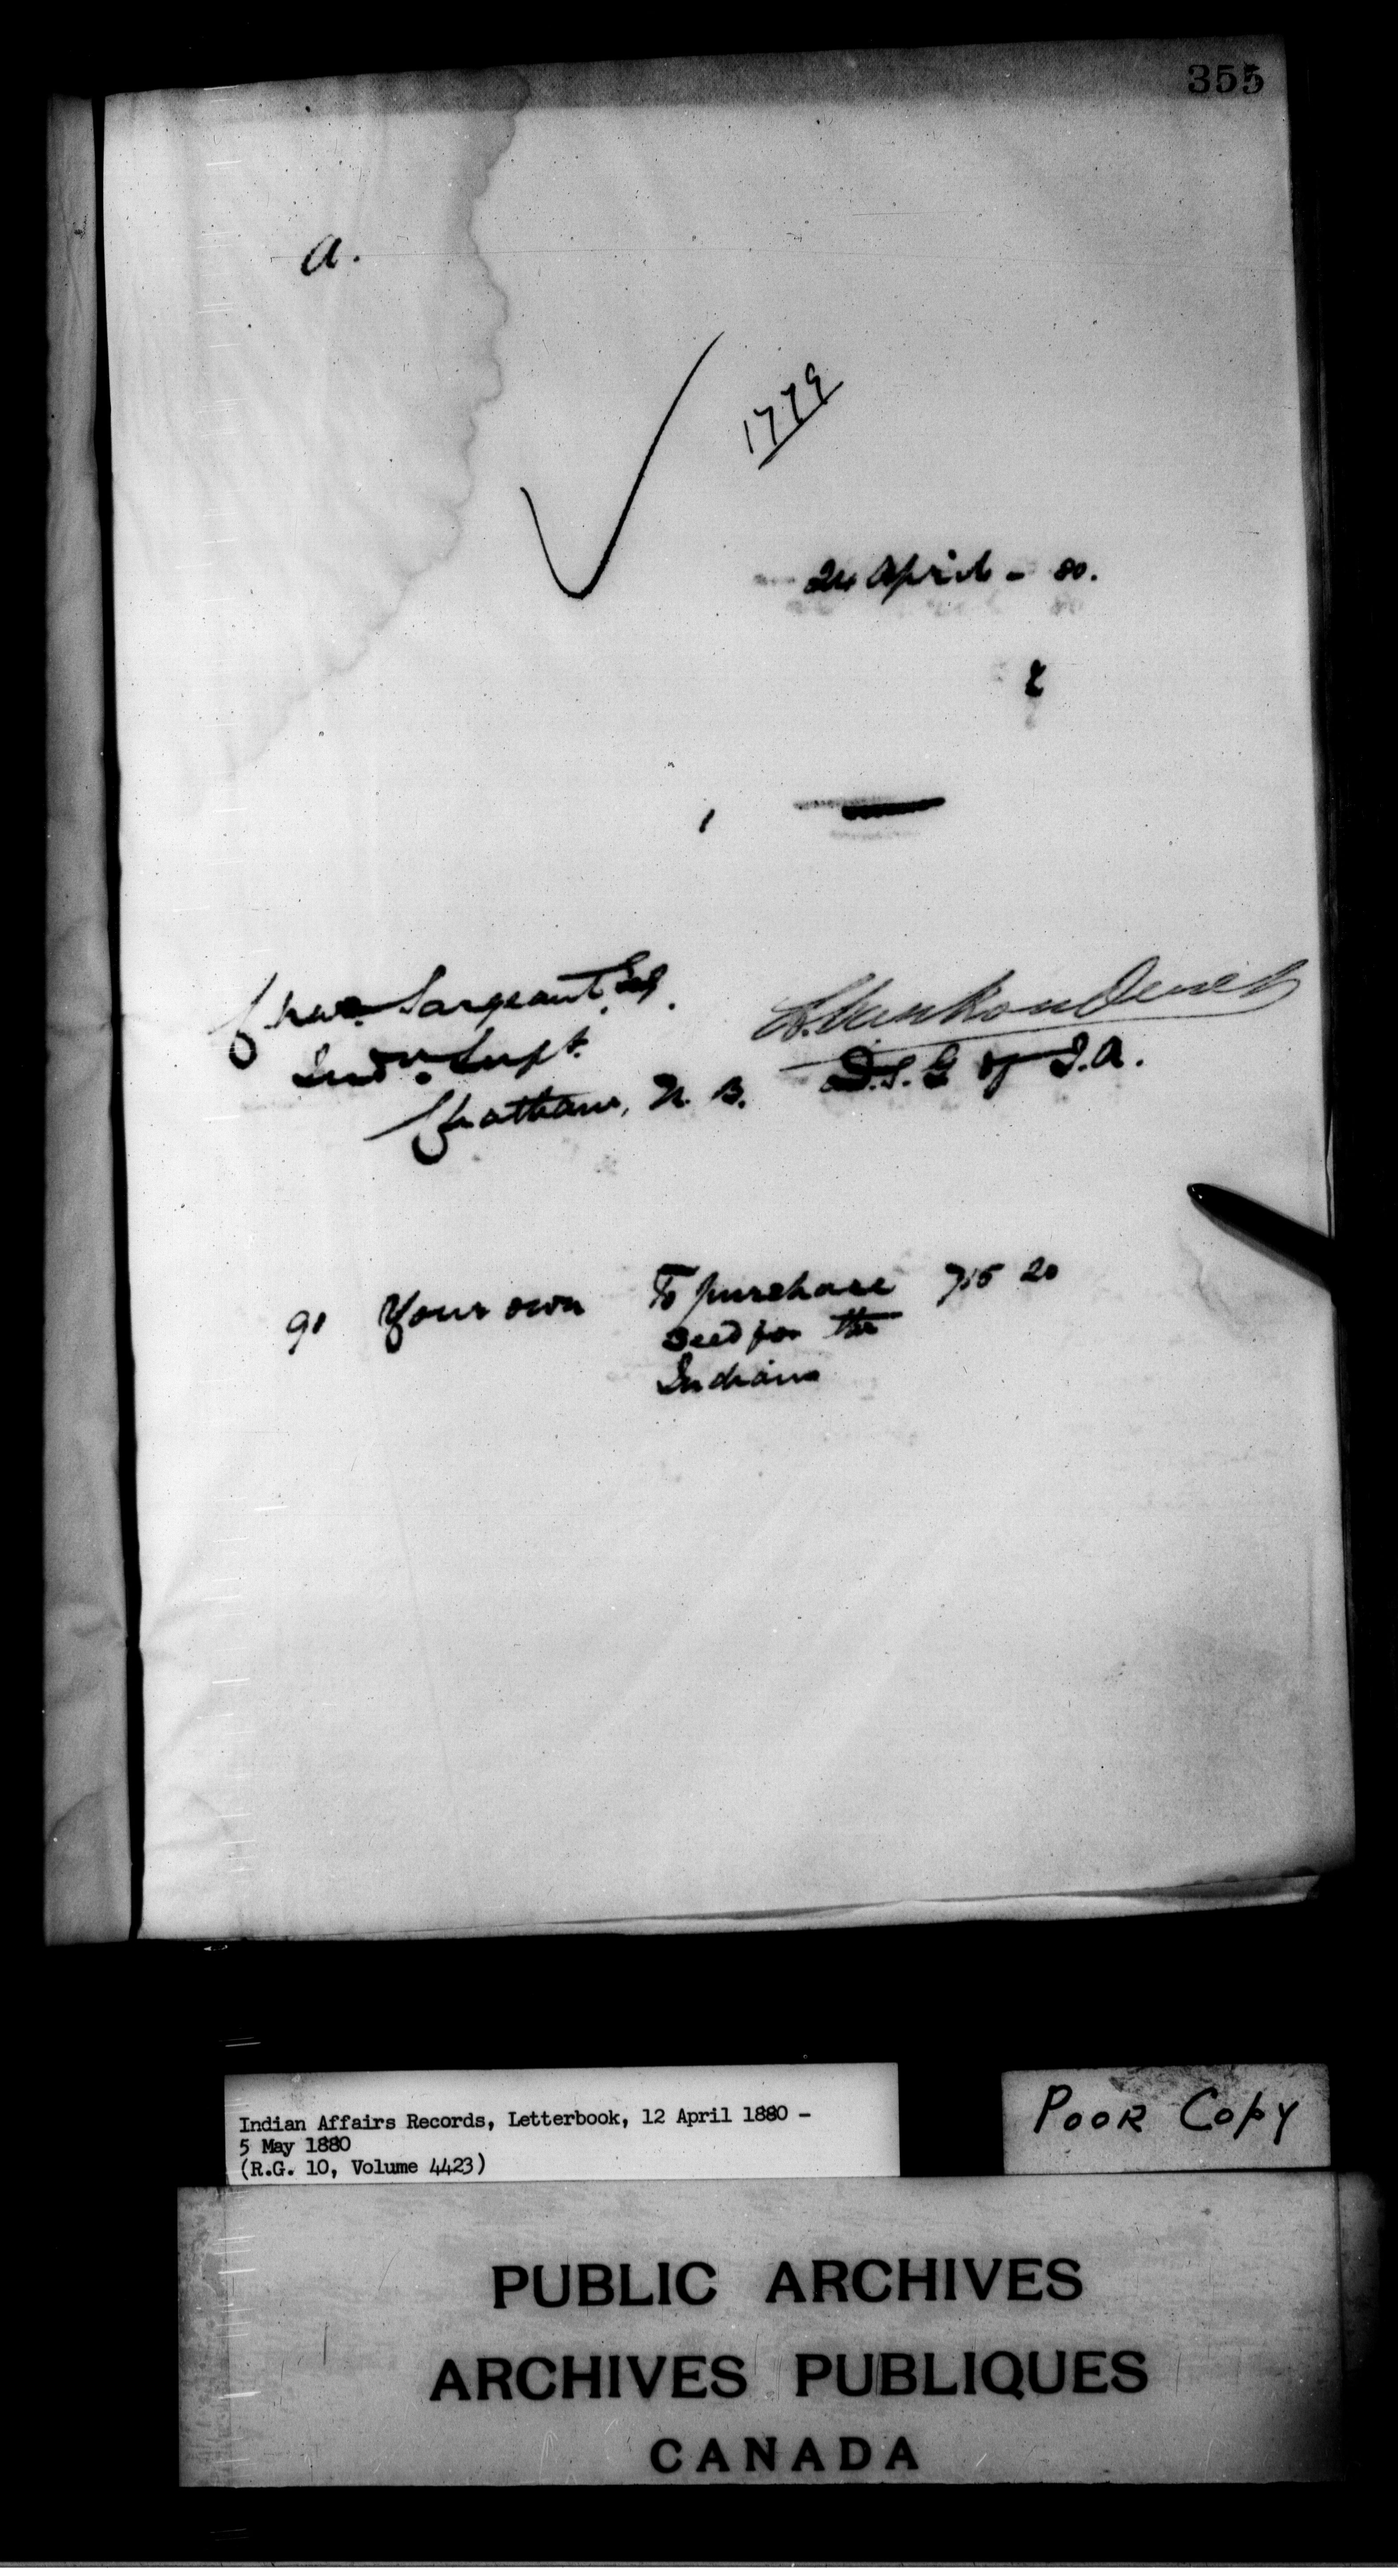 355
a.
1779
24 April - 80.
1
Chas. Sargeant, Esq.
Indn. Supt.
Chatham, N. B.
L. VanKoughnet
D.S.G of I.A.
91 Your own To purchase 715 20
seed for the
Indians
Indian Affairs Records, Letterbook, 12 April 1880 -
5 May 1880
(R.G. 10, Volume 4423)
POOR COPY
PUBLIC ARCHIVES
ARCHIVES PUBLIQUES
CANADA